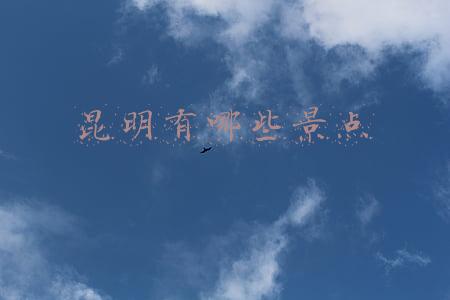 昆明有哪些景点